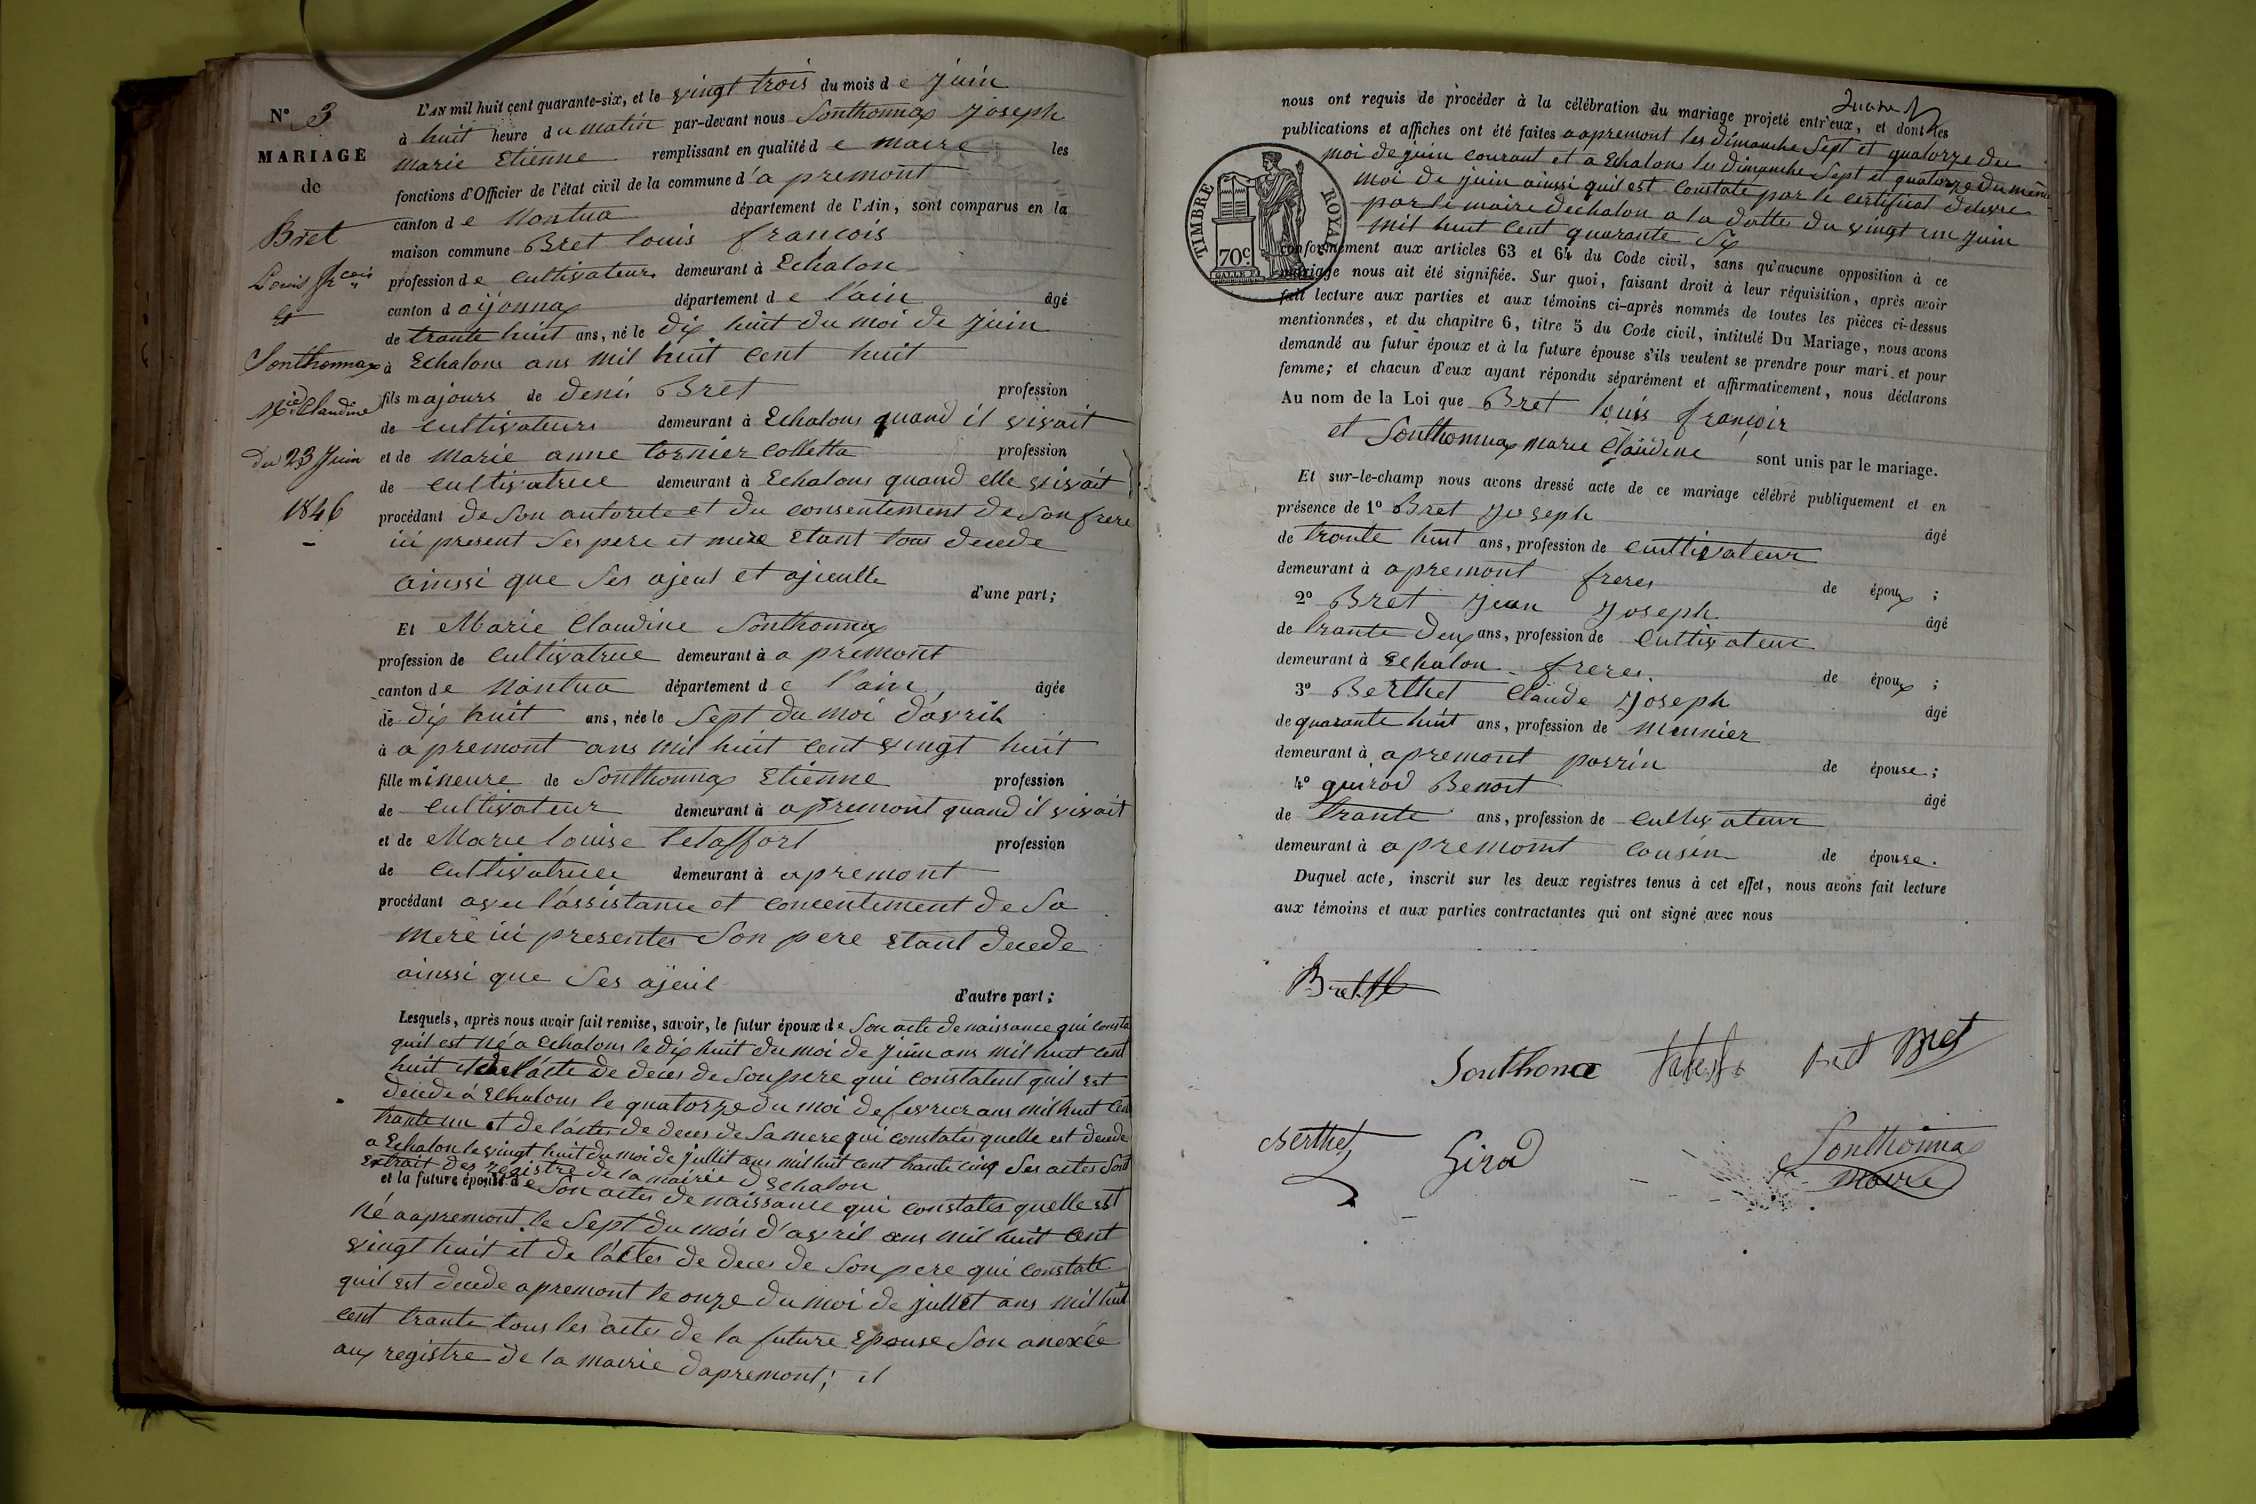 N° 3
MARIAGE
de
Bret
Louis frçois
et
Sonthonnax
Mie Claudine
du 23 Juin
1846
L'AN mil huit cent quarante-six, et le vingt trois du mois de juin
à huit heure du matin par-devant nous Sonthonnax Joseph
marie Etienne remplissant en qualité de maire les
fonctions d'Officier de l'état civil de la commune d'apremont
canton de Nantua département de l'Ain, sont comparus en la
maison commune Bret louis francois
profession de cultivateur demeurant à Echalon
canton d oijonnax département de l'ain âgé
de trante huit ans, né le dix huit du moi de juin
à Echalons ans mil huit cent huit
fils majours de denis Bret profession
de cultivateurs demeurant à Echalons quand il vivait
et de marie anne tornier Colletta profession
de cultivatrice demeurant à Echalons quand elle vivait
procédant de son autorete et du consentement de son frere
ici present ses pere et mere Etant tous decede
ainssi que ses ajeul et ajeulle
d'une part;
Et Marie Claudine Sonthonnax
profession de cultivatrice demeurant à apremont
canton de Nantua département de l'ain, âgée
de dix huit ans, née le sept du moi d'avril
à apremont ans mil huit cent vingt huit
fille mineure de Sonthonnax Etienne profession
de cultivateur demeurant à apremont quand il vivait
et de Marie louise profession
de cultivatrice demeurant à apremont
procédant avec l'assistance et concentement de sa
mere ici presentes son pere etant decede
ainssi que ses ajeul
d'autre part;
Lesquels, après nous avoir fait remise, savoir, le futur époux de son acte de naissance qui consta
quil est né a Echalons le dix huit du moi de juin ans mil huit cent
huit et de l'acte de deces de son pere qui constatent quil est
decede á Echalons le quatorze du moi de fevrier ans mil huit cen
trante un et de l'actes de deces de sa mere qui constates quelle est decede
a Echalon le vingt huit du moi de jullit ans mil huit cent trante cinq ses actes sont
extrait des registre de la mairie dEchalon
et la future épouse de son actes de naissance qui constates quelle est
né a apremont le sept du mois d'avril ans mil huit cent
vingt huit et de l'actes de deces de son pere qui constate
quil est decede apremont le onze du moi de jullet ans mil huit
cent trante tous les actes de la future Epouse son anexée
aux registre de la mairie dapremont; et
nous ont requis de procéder à la célébration du mariage projeté entr'eux, et dont les
publications et affiches ont été faites a apremont les dimanche sept et quatorze du
moi de juin courant et a Echalons les dimanche sept et quatorze du même
moi de juin ainssi quil est constate par le certificat delivre
par le maire dechalon a la datte du vingt un juin
mil huit cent quarante six
TIMBRE ROYAL
70c.
conformément aux articles 63 et 64 du Code civil, sans qu'aucune opposition à ce
mariage nous ait été signifiée. Sur quoi, faisant droit à leur réquisition, après avoir
fait lecture aux parties et aux témoins ci-après nommés de toutes les pièces ci-dessus
mentionnées, et du chapitre 6, titre 5 du Code civil, intitulé Du Mariage, nous avons
demandé au futur époux et à la future épouse s'ils veulent se prendre pour mari et pour
femme; et chacun d'eux ayant répondu séparément et affirmativement, nous déclarons
Au nom de la Loi que Bret louis françois
et Sonthonnax marie Claudine sont unis par le mariage.
Et sur-le-champ nous avons dressé acte de ce mariage célébré publiquement et en
présence de 1° Bret Joseph âgé
de trante huit ans, profession de cultivateur
demeurant à apremont freres de époux;
2° Bret Jean Joseph âgé
de trante deux ans, profession de cultivateur
demeurant à Echalon freres de époux;
3° Berthet Claude Joseph âgé
de quarante huit ans, profession de meunier
demeurant à apremont parrin de épouse;
4° guirod Benoit âgé
de trante ans, profession de cultivateur
demeurant à apremomt cousin de épouse.
Duquel acte, inscrit sur les deux registres tenus à cet effet, nous avons fait lecture
aux témoins et aux parties contractantes qui ont signé avec nous
Bret
Sonthonax Bret
Berthet Girod Sonthonnax
maire